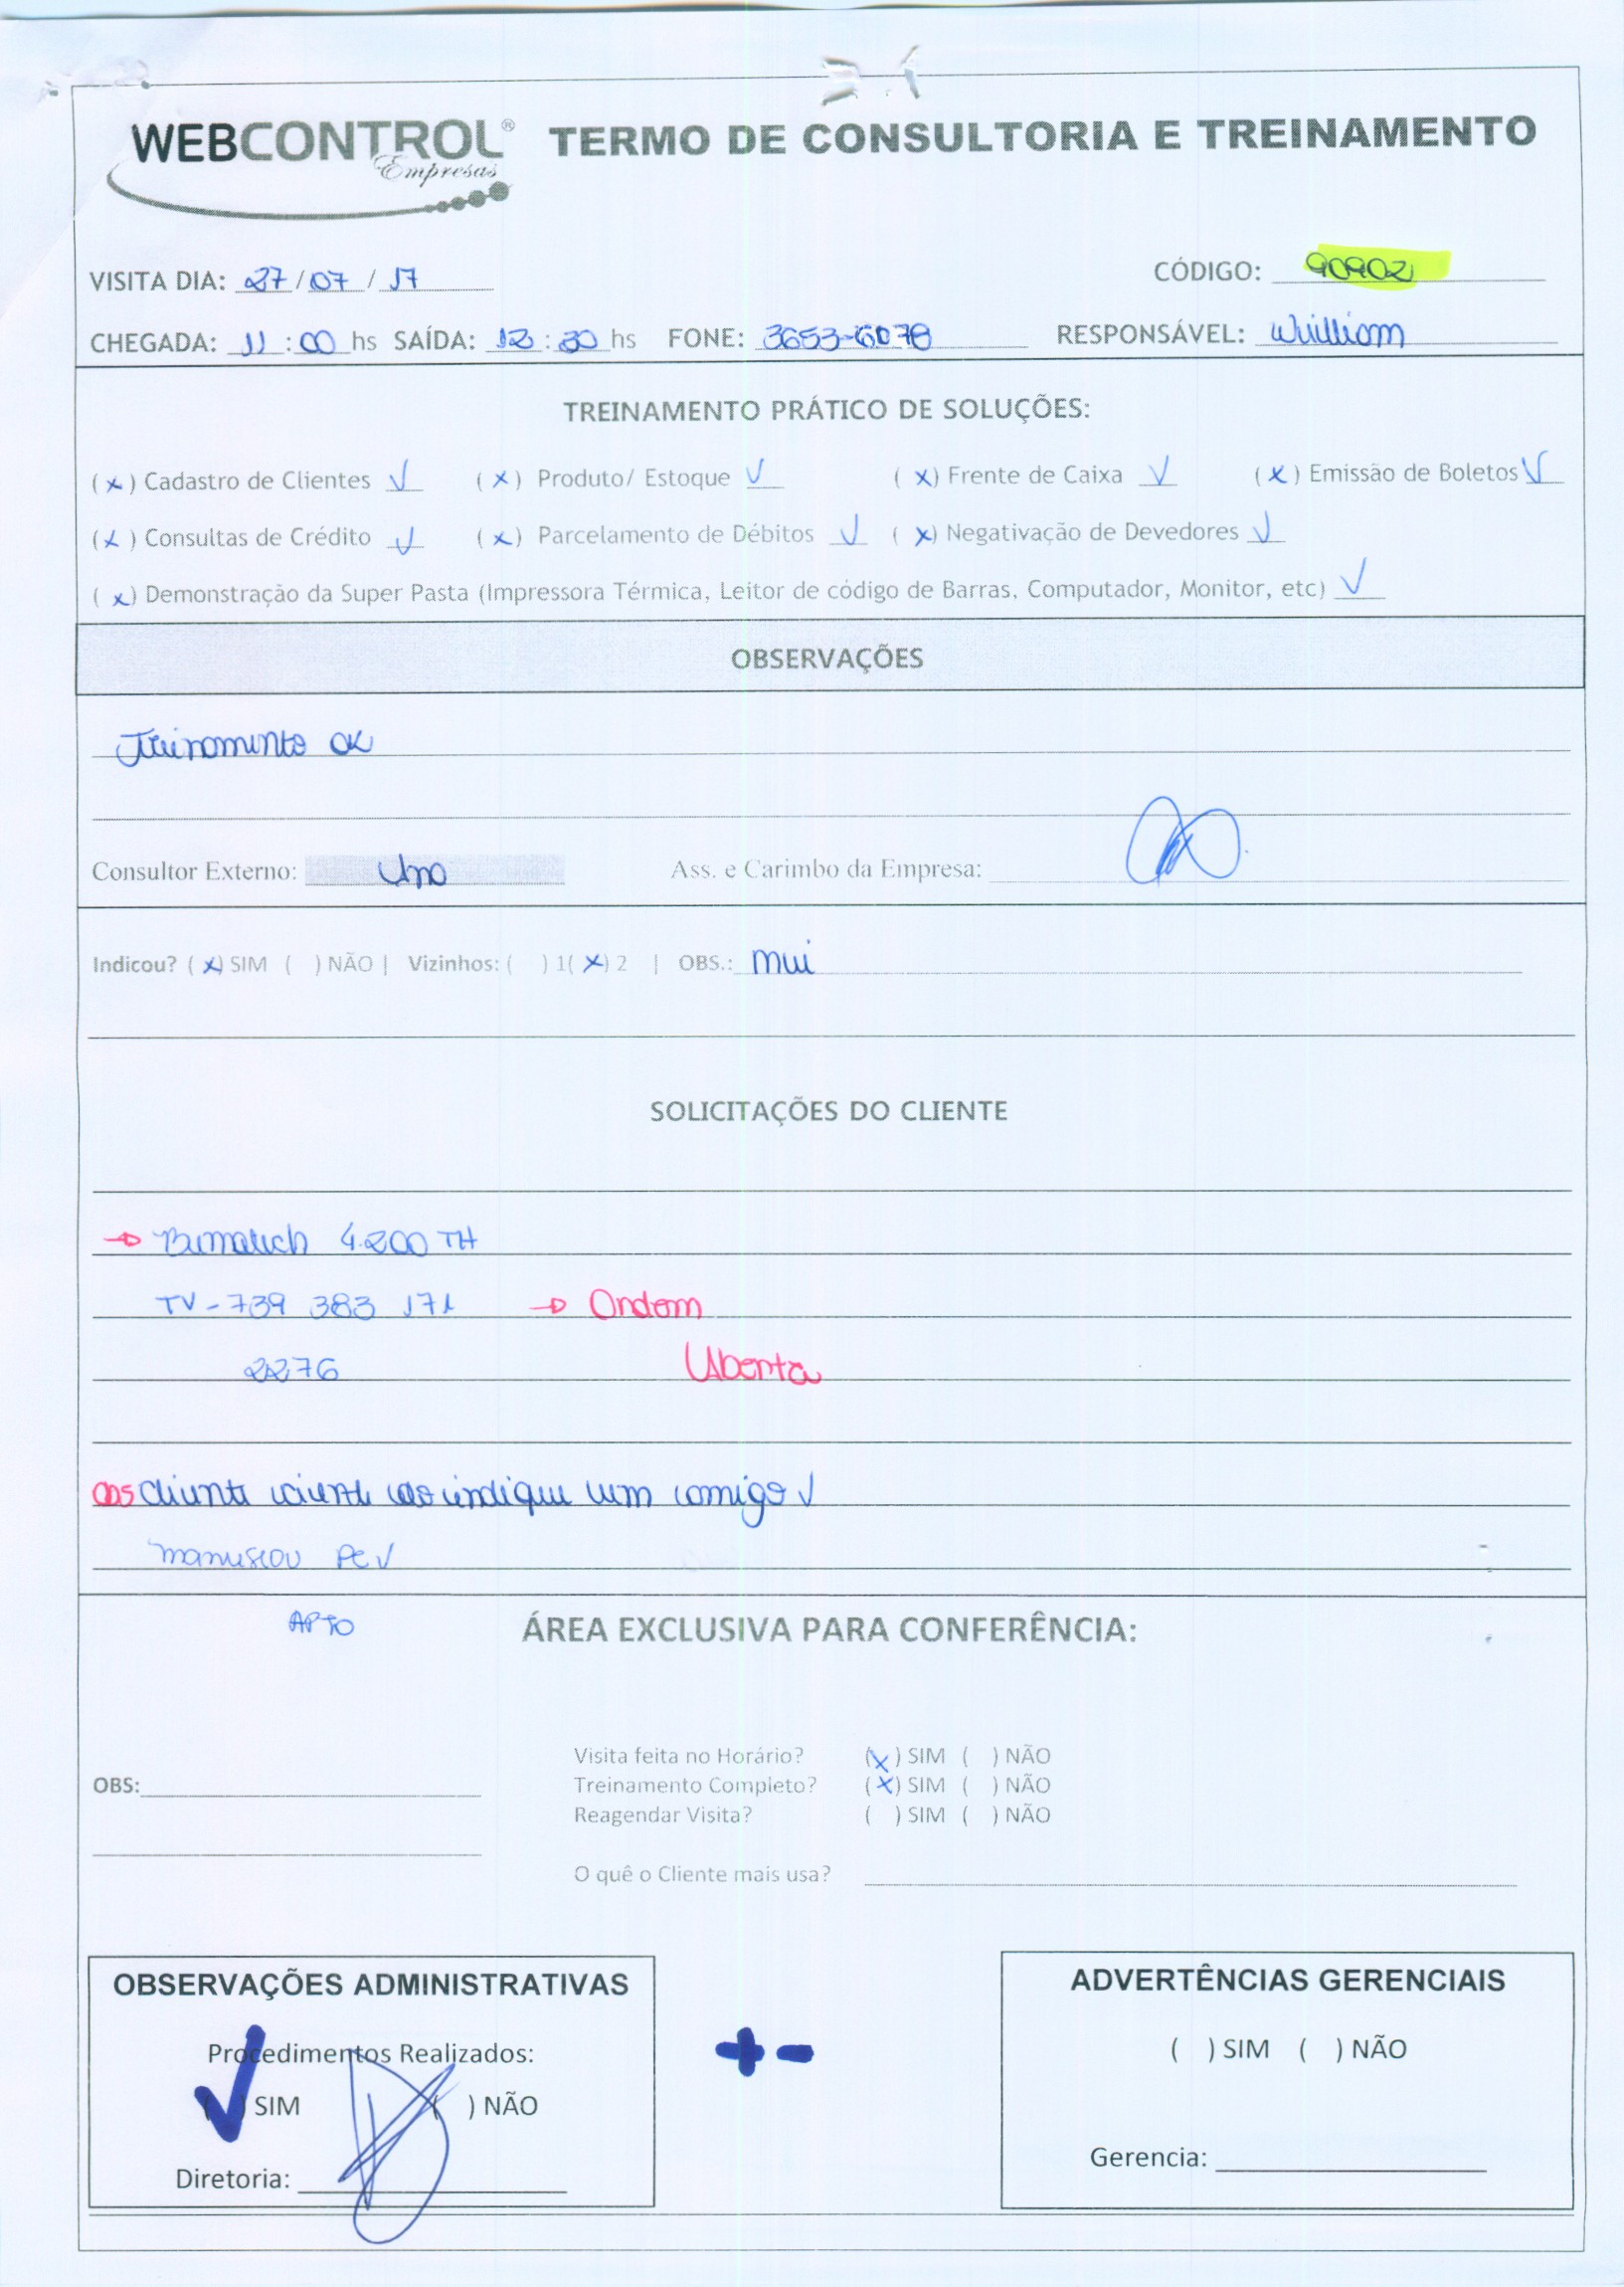 WEBCONTROL® Empresas TERMO DE CONSULTORIA E TREINAMENTO
VISITA DIA: 27/07/17 CÓDIGO: 90902
CHEGADA: 11:00 hs SAÍDA: 12:30 hs FONE: 3653-6078 RESPONSÁVEL: William
TREINAMENTO PRÁTICO DE SOLUÇÕES:
(x) Cadastro de Clientes ✓ (x) Produto/ Estoque ✓ (x) Frente de Caixa ✓ (x) Emissão de Boletos ✓
(x) Consultas de Crédito ✓ (x) Parcelamento de Débitos ✓ (x) Negativação de Devedores ✓
(x) Demonstração da Super Pasta (Impressora Térmica, Leitor de código de Barras, Computador, Monitor, etc) ✓
OBSERVAÇÕES
Treinamento ok
Consultor Externo: Ass. e Carimbo da Empresa:
Indicou? (x) SIM ( ) NÃO | Vizinhos: ( ) 1 (x) 2 | OBS.:
SOLICITAÇÕES DO CLIENTE
→ Bematech 4.200 TH
TV - 739 383 171 → Ordem
2276 Aberta
obs cliente ciente do indique um amigo ✓
PC ✓
APTO ÁREA EXCLUSIVA PARA CONFERÊNCIA:
Visita feita no Horário? (x) SIM ( ) NÃO
OBS: Treinamento Completo? (x) SIM ( ) NÃO
Reagendar Visita? ( ) SIM ( ) NÃO
O quê o Cliente mais usa?
OBSERVAÇÕES ADMINISTRATIVAS
Procedimentos Realizados:
(✓) SIM ( ) NÃO
Diretoria:
+-
ADVERTÊNCIAS GERENCIAIS
( ) SIM ( ) NÃO
Gerencia: